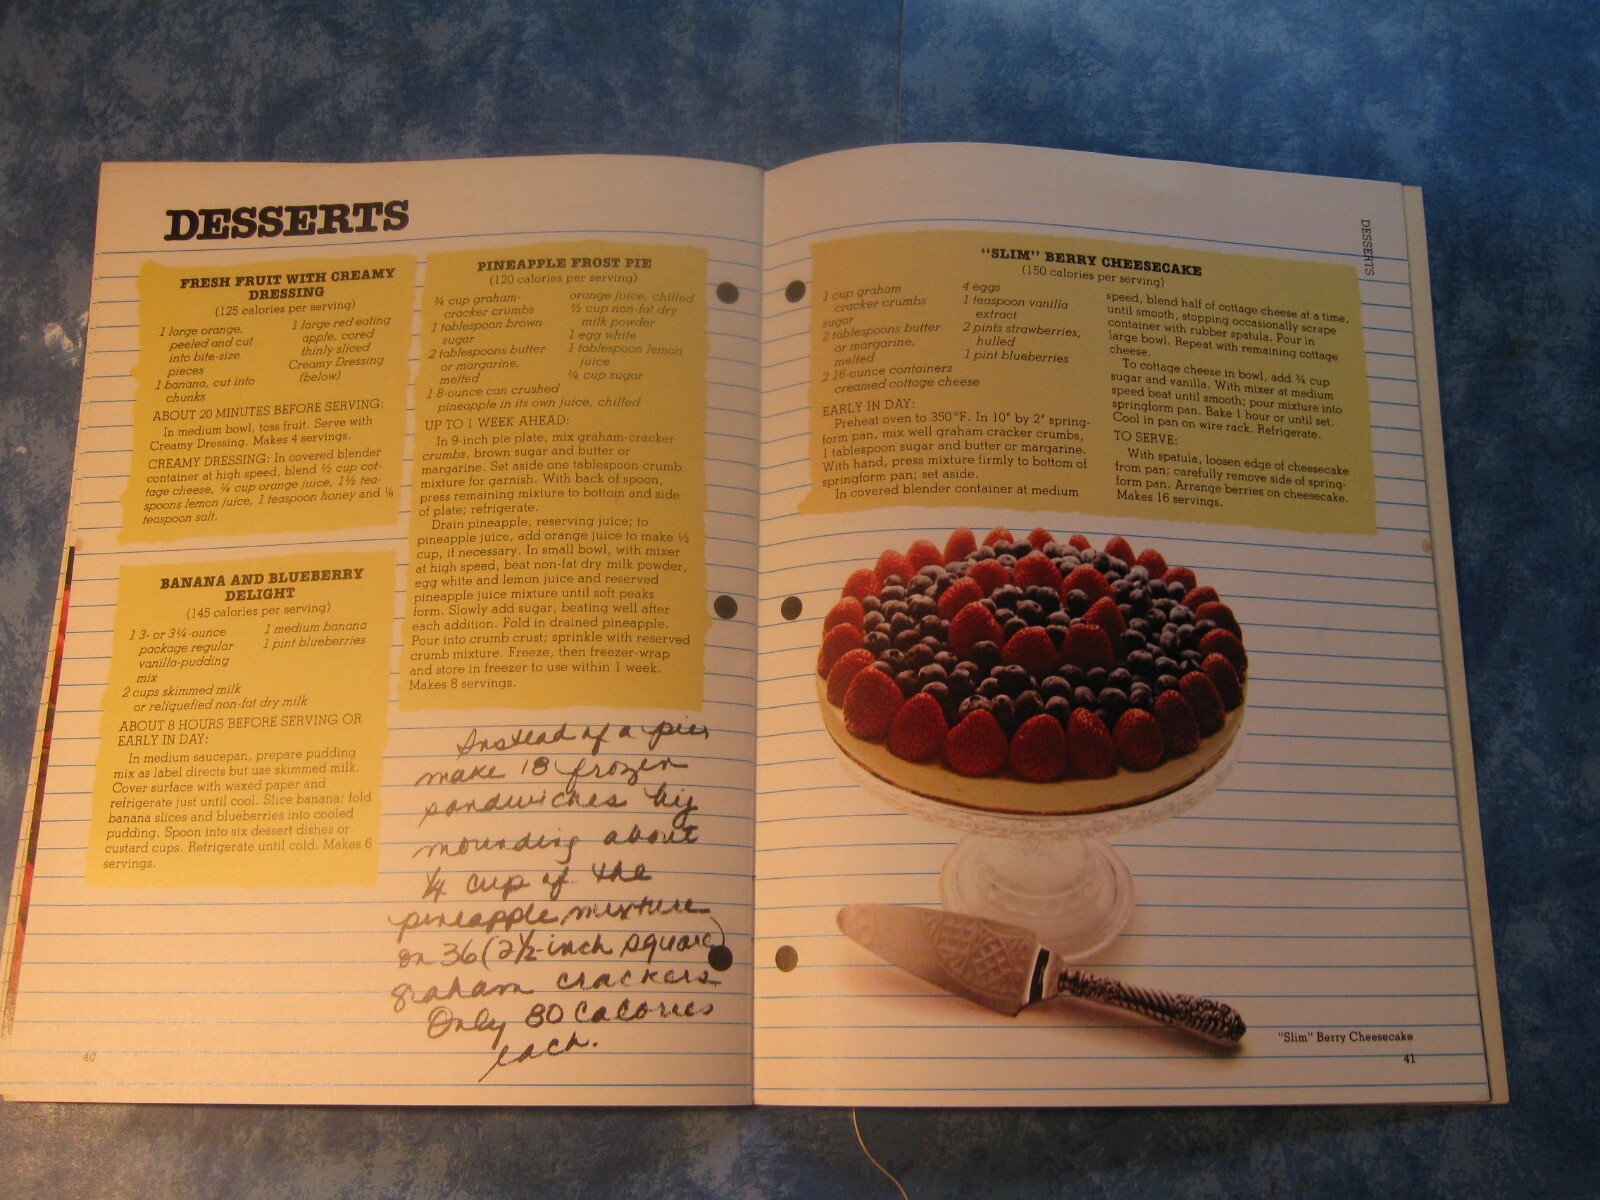 DESSERTS
FRESH FRUIT WITH CREAMY
DRESSING
(125 calories per serving)
1 large orange,
peeled and cut
into bite-size
pieces
1 banana, cut into
chunks
1 large red eating
apple, cored
thinly sliced
Creamy Dressing
(below)
ABOUT 20 MINUTES BEFORE SERVING:
In medium bowl, toss fruit. Serve with
Creamy Dressing. Makes 4 servings.
CREAMY DRESSING: In covered blender
container at high speed, blend ½ cup cot-
tage cheese, ¼ cup orange juice, 1½ tea-
spoons lemon juice, 1 teaspoon honey and ⅛
teaspoon salt.
BANANA AND BLUEBERRY
DELIGHT
(145 calories per serving)
1 3- or 3¼-ounce
package regular
vanilla-pudding
mix
2 cups skimmed milk
or reliquefied non-fat dry milk
1 medium banana
1 pint blueberries
ABOUT 8 HOURS BEFORE SERVING OR
EARLY IN DAY:
In medium saucepan, prepare pudding
mix as label directs but use skimmed milk.
Cover surface with waxed paper and
refrigerate just until cool. Slice banana; fold
banana slices and blueberries into cooled
pudding. Spoon into six dessert dishes or
custard cups. Refrigerate until cold. Makes 6
servings.
40
PINEAPPLE FROST PIE
(120 calories per serving)
¾ cup graham-
cracker crumbs
1 tablespoon brown
sugar
2 tablespoons butter
or margarine,
melted
1 8-ounce can crushed
pineapple in its own juice, chilled
orange juice, chilled
½ cup non-fat dry
milk powder
1 egg white
1 tablespoon lemon
juice
¼ cup sugar
UP TO 1 WEEK AHEAD:
In 9-inch pie plate, mix graham-cracker
crumbs, brown sugar and butter or
margarine. Set aside one tablespoon crumb
mixture for garnish. With back of spoon,
press remaining mixture to bottom and side
of plate; refrigerate.
Drain pineapple, reserving juice; to
pineapple juice, add orange juice to make ½
cup, if necessary. In small bowl, with mixer
at high speed, beat non-fat dry milk powder,
egg white and lemon juice and reserved
pineapple juice mixture until soft peaks
form. Slowly add sugar, beating well after
each addition. Fold in drained pineapple.
Pour into crumb crust; sprinkle with reserved
crumb mixture. Freeze, then freezer-wrap
and store in freezer to use within 1 week.
Makes 8 servings.
Instead of a pie,
make 18 frozen
sandwiches by
mounding about
¼ cup of the
pineapple mixture
on 36 (2½-inch square)
graham crackers
Only 80 calories
each.
DESSERTS
"SLIM" BERRY CHEESECAKE
(150 calories per serving)
1 cup graham
cracker crumbs
sugar
2 tablespoons butter
or margarine,
melted
2 16-ounce containers
creamed cottage cheese
4 eggs
1 teaspoon vanilla
extract
2 pints strawberries,
hulled
1 pint blueberries
EARLY IN DAY:
Preheat oven to 350°F. In 10" by 2" spring-
form pan, mix well graham cracker crumbs,
1 tablespoon sugar and butter or margarine.
With hand, press mixture firmly to bottom of
springform pan; set aside.
In covered blender container at medium
speed, blend half of cottage cheese at a time,
until smooth, stopping occasionally scrape
container with rubber spatula. Pour in
large bowl. Repeat with remaining cottage
cheese.
To cottage cheese in bowl, add ¾ cup
sugar and vanilla. With mixer at medium
speed beat until smooth; pour mixture into
springform pan. Bake 1 hour or until set.
Cool in pan on wire rack. Refrigerate.
TO SERVE:
With spatula, loosen edge of cheesecake
from pan; carefully remove side of spring-
form pan. Arrange berries on cheesecake.
Makes 16 servings.
"Slim" Berry Cheesecake
41